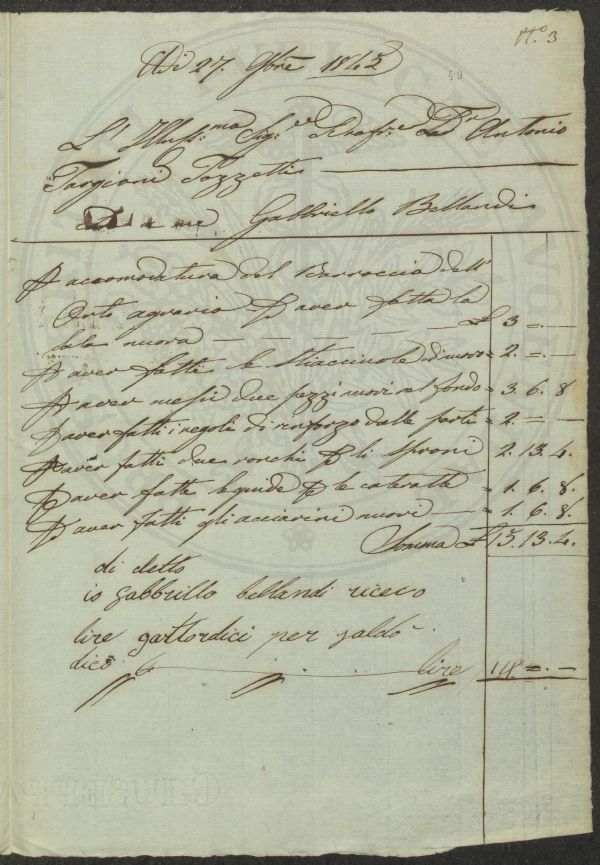 N.o 3
Adi 27. 9bre 1845
49
L' Illuss.ma Sig.re Profes.e D.re Antonio
Targioni Tozzetti
Dare a me Gabbriello Bellandi
P accomodatura del Barroccio dell'
Orto agrario P aver fatta la
sala nuova £ 3 = . —
P aver fatti le Stiaccivole di nuovo = 2. = . —
P aver messi due pezzi nuovi al fondo = 3. 6. 8
P aver fatti i regoli di rinforzo dalle parti = 2. — —
P aver fatti due ronchi P li sproni 2. 13. 4.
P aver fatte le guide P le cateratte = 1. 6. 8.
P aver fatti gli acciarini nuovi — = 1. 6. 8.
Somma £ 15. 13. 4.
di detto
io gabbrillo bellandi ricevo
lire gattordici per saldo
dico lire 14. = . —